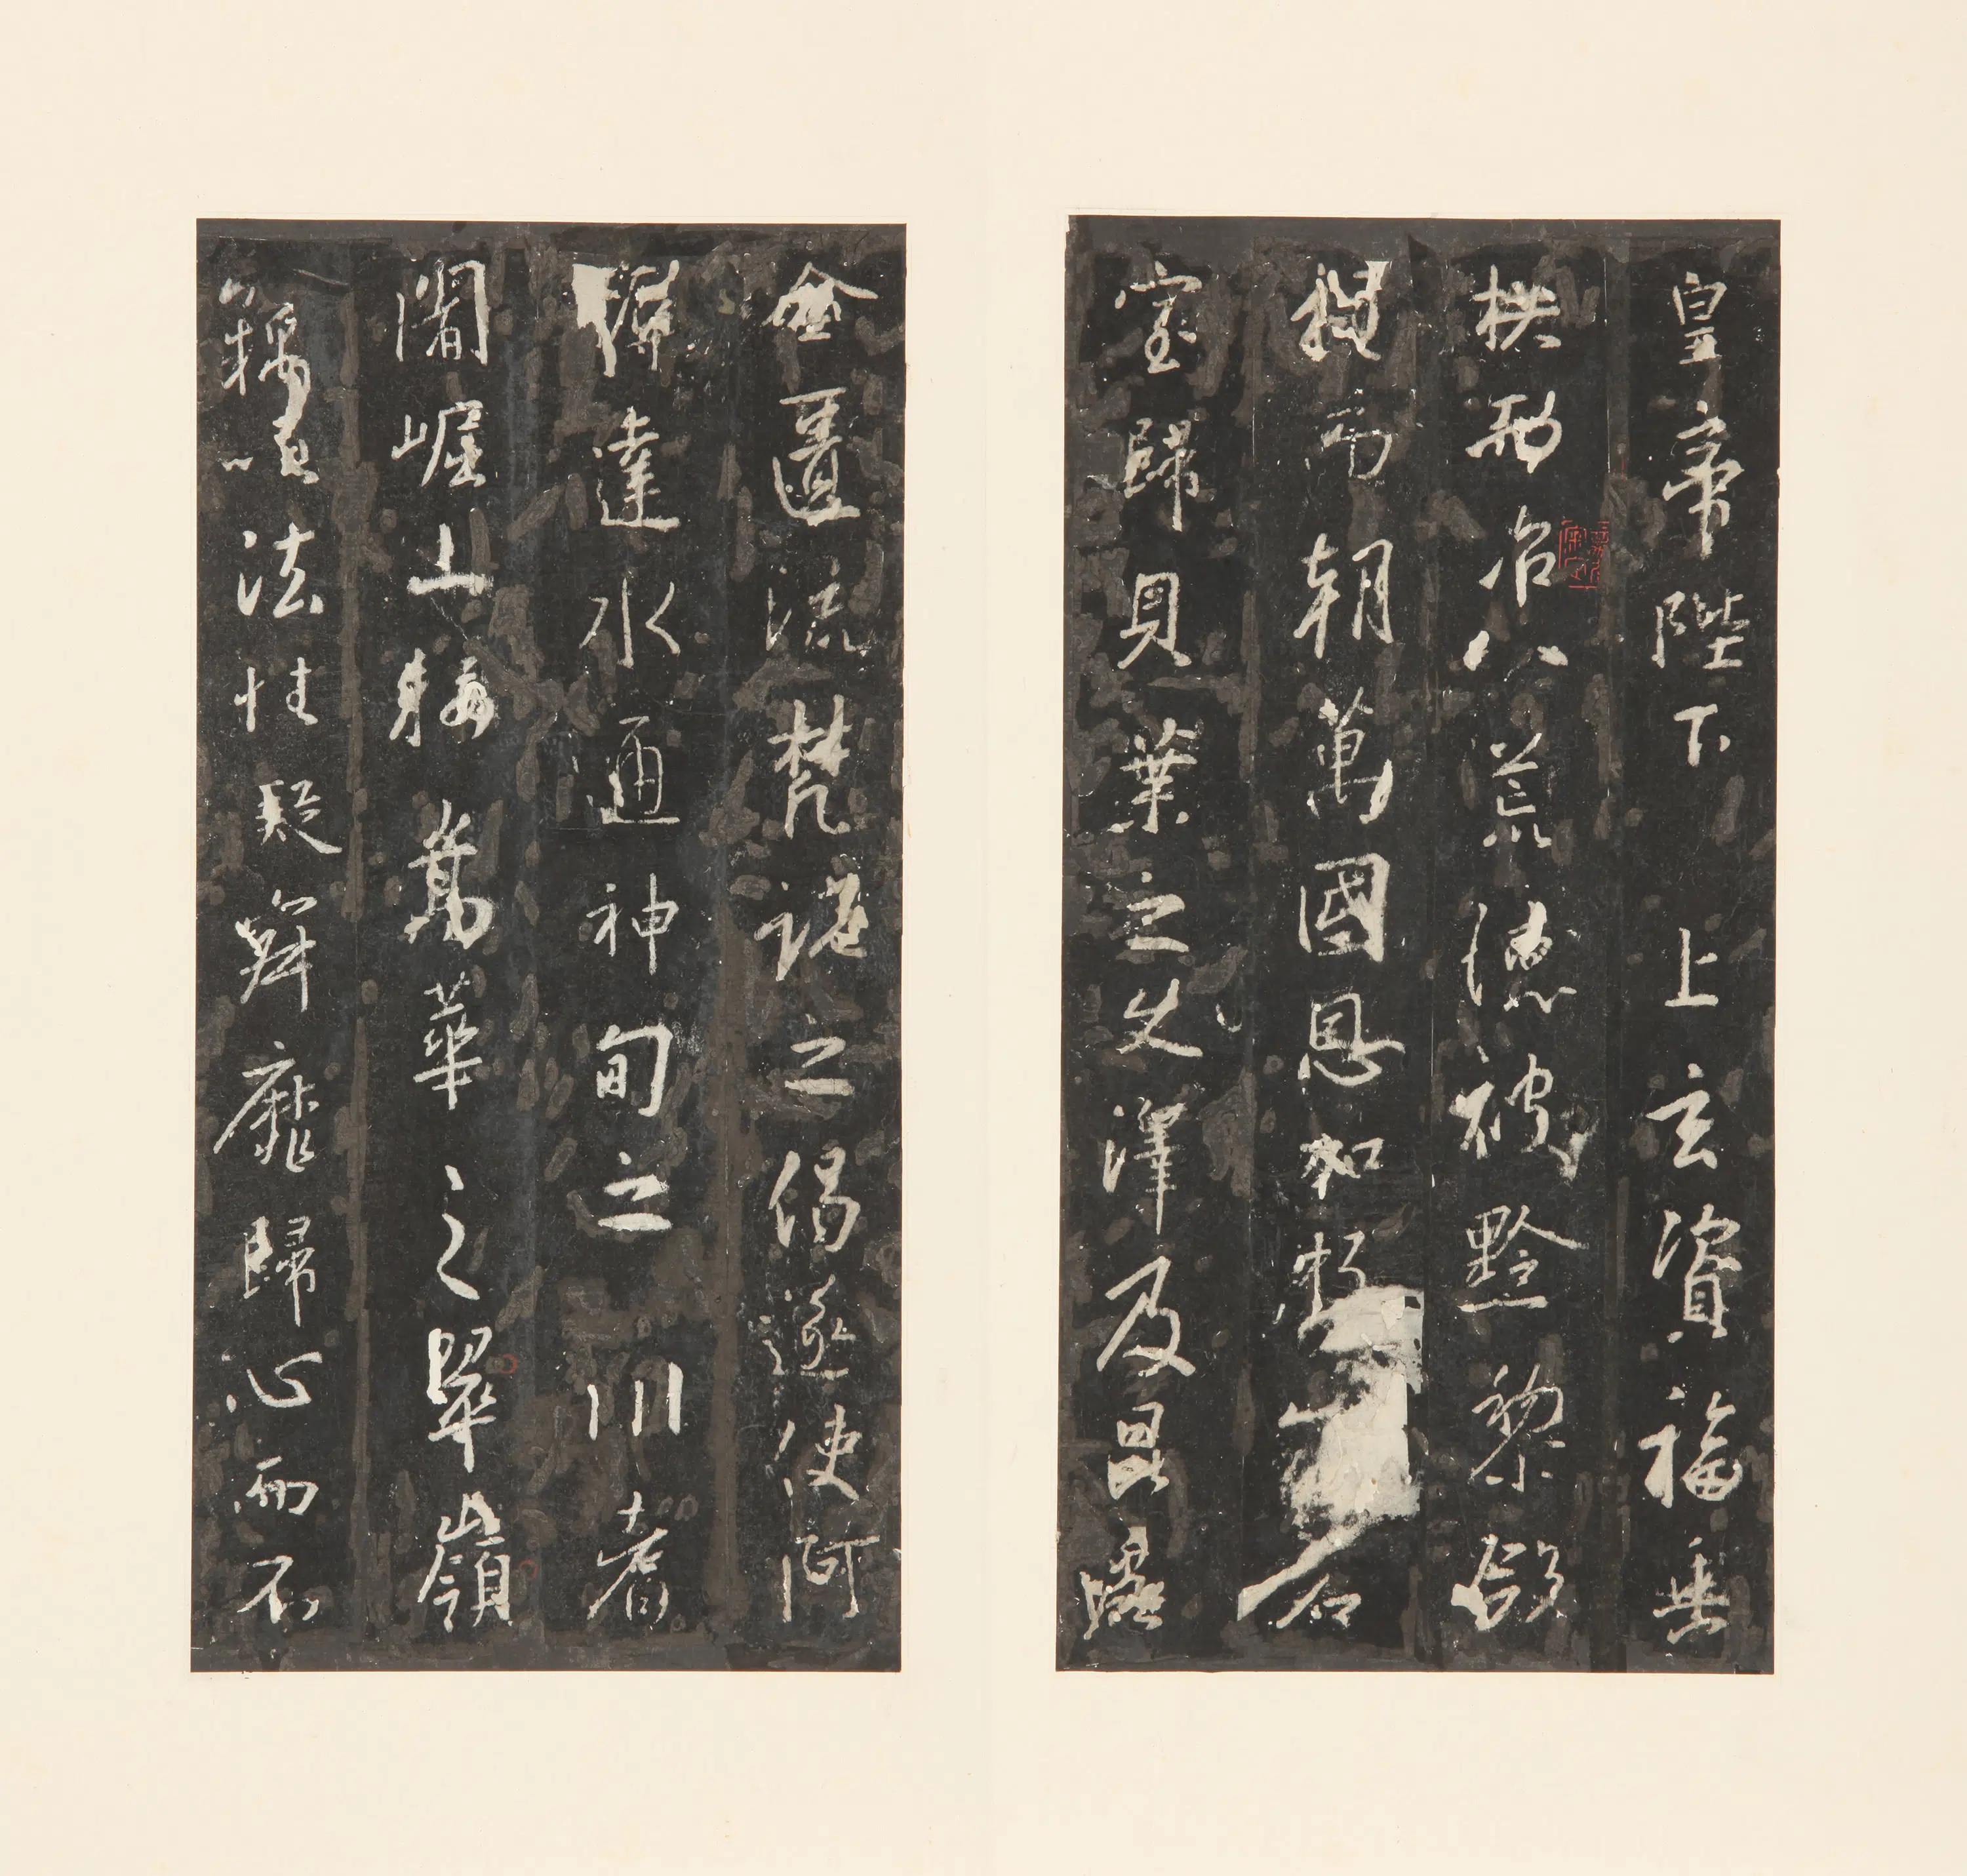 皇帝陛下上玄資福垂
拱而治八荒德被黔黎斂
衽而朝萬國恩加朽石
室歸貝葉之文澤及昆蟲
金匱流梵說之偈遂使阿
耨達水通神甸之川耆
闍崛山接嵩華之翠嶺
竊以法性凝寂靡歸心而不